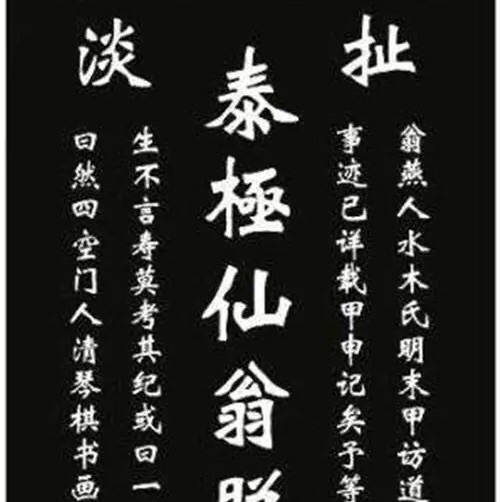 扯淡
翁燕人水木氏明末甲访道
事迹已详载甲申记矣予等
泰極仙翁
生不言寿莫考其纪或曰一
曰然四空门人清琴棋书画